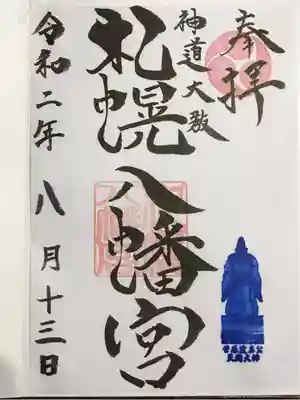 奉拝
神道大教
札幌八幡宮
令和二年八月十三日
菅原道真公